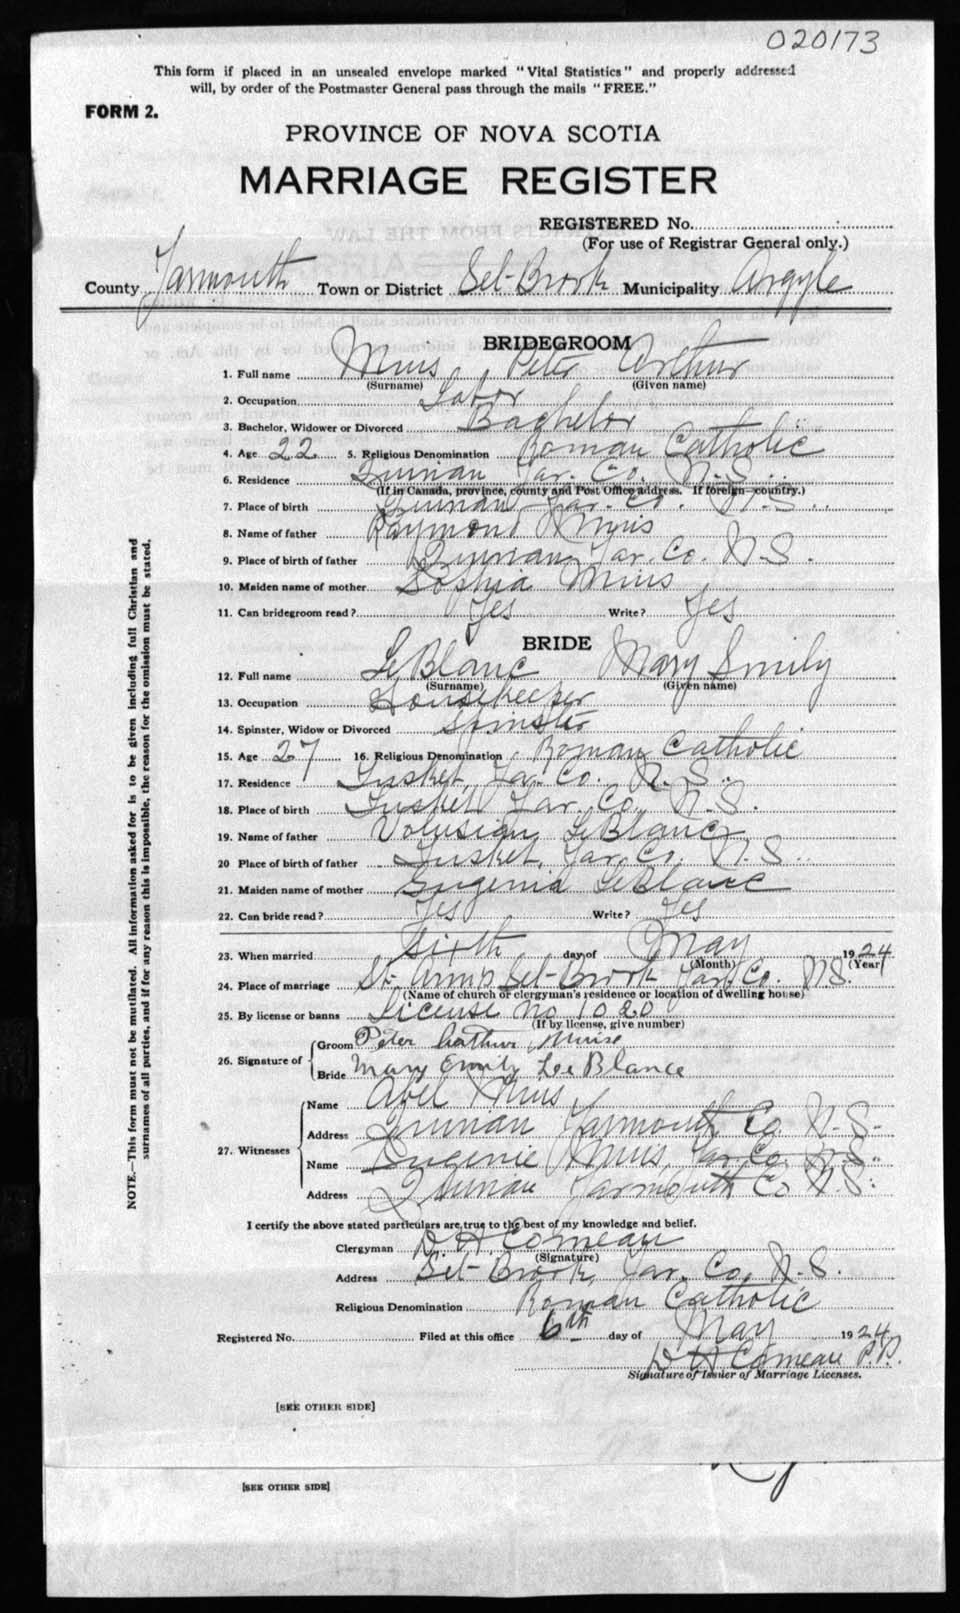 020173
This form if placed in an unsealed envelope marked "Vital Statistics" and properly addressed
will, by order of the Postmaster General pass through the mails "FREE."
FORM 2.
PROVINCE OF NOVA SCOTIA
MARRIAGE REGISTER
REGISTERED No.
(For use of Registrar General only.)
County Yarmouth Town or District Eel-Brook Municipality Argyle
BRIDEGROOM
1. Full name Muis Peter Arthur
(Surname) (Given name)
2. Occupation Labor
3. Bachelor, Widower or Divorced Bachelor
4. Age 22 5. Religious Denomination Roman Catholic
6. Residence Quinan Yar. Co. N.S.
(If in Canada, province, county and Post Office address. If foreign—country.)
7. Place of birth Quinan Yar. Co. N.S.
8. Name of father Raymond Muis
9. Place of birth of father Quinan Yar. Co. N.S.
10. Maiden name of mother Sophia Muis
11. Can bridegroom read? Yes Write? Yes
BRIDE
12. Full name LeBlanc Mary Emily
(Surname) (Given name)
13. Occupation Housekeeper
14. Spinster, Widow or Divorced Spinster
15. Age 27 16. Religious Denomination Roman Catholic
17. Residence Tusket, Yar. Co. N.S.
18. Place of birth Tusket Yar. Co. N.S.
19. Name of father Volusian LeBlanc
20 Place of birth of father Tusket, Yar. Co. N.S.
21. Maiden name of mother Eugenia LeBlanc
22. Can bride read? Yes Write? Yes
23. When married Sixth day of May 1924
(Month) (Year)
24. Place of marriage St. Ann's Eel-Brook Yar. Co. N.S.
(Name of church or clergyman's residence or location of dwelling house)
25. By license or banns License no 1020
(If by license, give number)
26. Signature of Groom Peter Muise
Bride Mary Emily Le Blance
27. Witnesses Name Abel Muis
Address Quinan Yarmouth Co. N.S.
Name Eugenie Muis, Yar. Co. N.S.
Address Quinan Yarmouth Co N.S.
I certify the above stated particulars are true to the best of my knowledge and belief.
Clergyman D H Comeau
(Signature)
Address Eel-Brook, Yar. Co. N.S.
Religious Denomination Roman Catholic
Registered No. Filed at this office 6th day of May 1924
D H Comeau P.P.
Signature of Issuer of Marriage Licenses.
[SEE OTHER SIDE]
[SEE OTHER SIDE]
NOTE.—This form must not be mutilated. All information asked for is to be given including full Christian and
surnames of all parties, and if for any reason this is impossible, the reason for the omission must be stated.